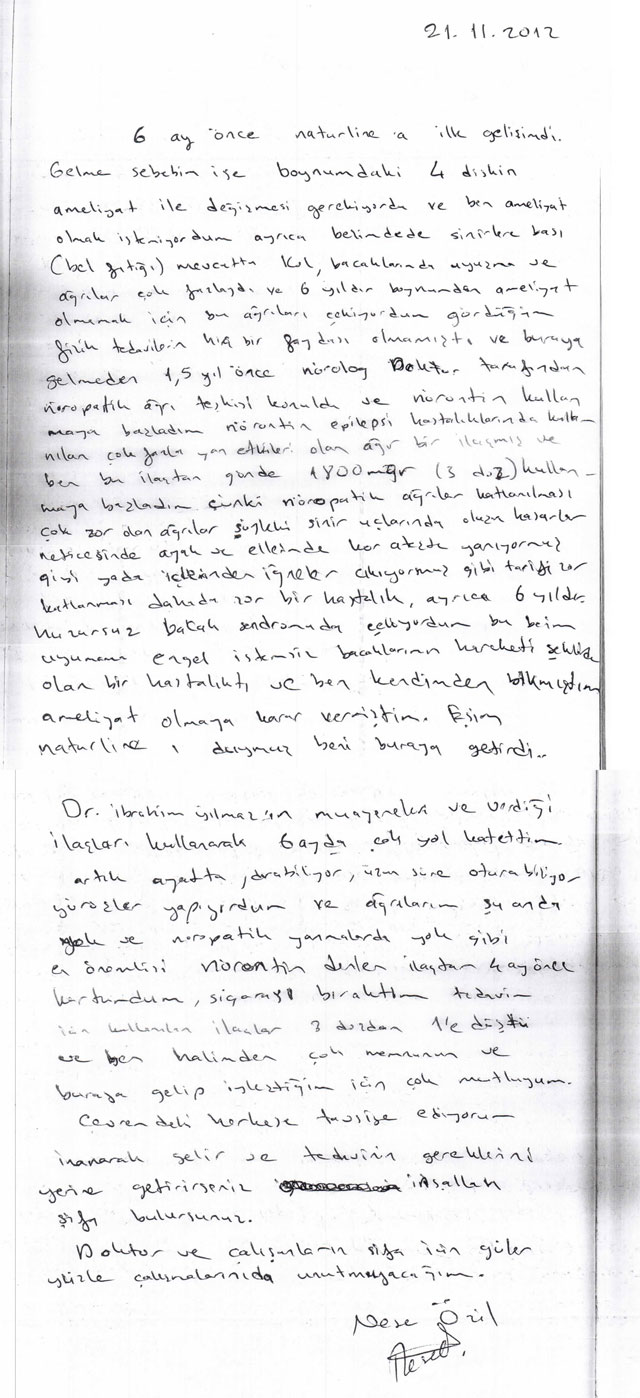 21.11.2012
6 ay önce naturline a ilk gelişimdi.
Gelme sebebim ise boynumdaki 4 diskin
ameliyat ile değişmesi gerekiyordu ve ben ameliyat
olmak istemiyordum ayrıca belimdede sinirlere bası
(bel fıtığı) mevcuttu kol, bacaklarımda uyuşma ve
ağrılar çok fazlaydı ve 6 yıldır boynumdan ameliyat
olmamak için bu ağrıları çekiyordum gördüğüm
fizik tedavilerin hiç bir faydası olmamıştı ve buraya
gelmeden 1,5 yıl önce nörolog Doktur tarafından
nöropatik ağrı teşhisi konuldu ve nörontin kullan
maya başladım nörontin epilepsi hastalıklarında kulla-
nılan çok fazla yan etkileri olan ağır bir ilaçmış ve
ben bu ilaçtan günde 1800 mgr (3 doz) kullan-
maya başladım çünki nöropatik ağrılar katlanılması
çok zor olan ağrılar şöyleki sinir uçlarında oluşan hasarlar
neticesinde ayak ve ellerimde kor ateşte yanıyormuş
gibi yada içlerinden iğneler çıkıyormuş gibi tarifi zor
katlanması dahada zor bir hastalık, ayrıca 6 yıldır
huzursuz bacak sendromuda çekiyordum bu beim
uyumama engel istemsiz bacaklarımın hareketi şeklide
olan bir hastalıktı ve ben kendimden bıkmıştım
ameliyat olmaya karar vermiştim. Eşim
naturline ı duymuş beni buraya getirdi..
Dr. ibrahim yılmaz'ın muayeneleri ve verdiği
ilaçları kullanarak 6 ayda çok yol katettim
artık ayatta durabiliyor, uzun süre oturabiliyor
yürüyüşler yapıyordum ve ağrılarım şu anda
yok ve nöropatik yanmalarda yok gibi
en önemlisi nörontin denilen ilaçtan 4 ay önce
kurtundum, sigarayı bıraktım tedavim
için kullanılan ilaçlar 3 dozdan 1'e düştü
ve ben halimden çok memnunum ve
buraya gelip iyileştiğim için çok mutluyum.
Çevremdeki herkese tavsiye ediyorum
inanarak gelir ve tedavinin gereklerini
yerine getirirseniz inşallah
şifa bulursunuz.
Doktor ve çalışanların şifa için güler
yüzle çalışmalarınıda unutmayacağım.
Neşe Özil